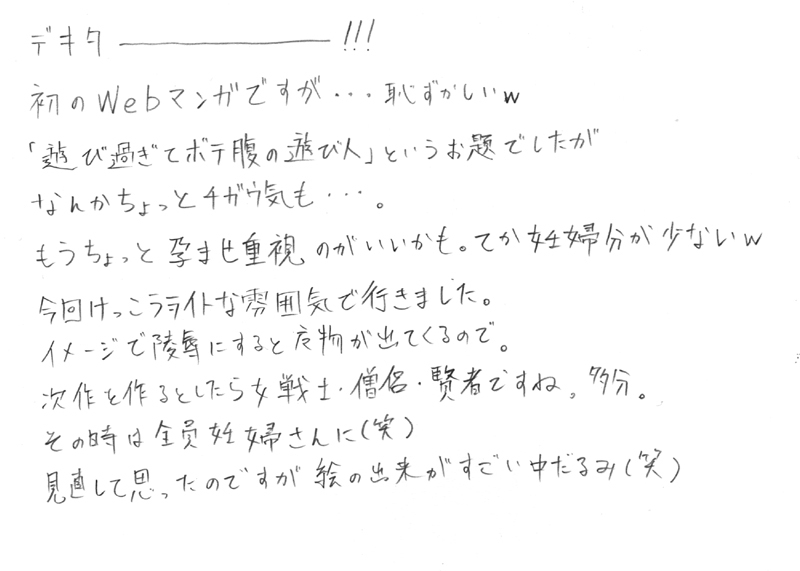 デキター!!!
初のWebマンガですが・・・恥ずかしいw
「遊び過ぎてボテ腹の遊び人」というお題でしたが
なんかちょっとチガウ気も・・・。
もうちょっと孕ませ重視のがいいかも。てか妊婦分が少ないw
今回けっこうライトな雰囲気で行きました。
イメージで陵辱にすると 物が出てくるので。
次作を作るとしたら女戦士・僧侶・賢者ですね。多分。
その時は全員妊婦さんに(笑)
見直して思ったのですが絵の出来がすごい中だるみ(笑)